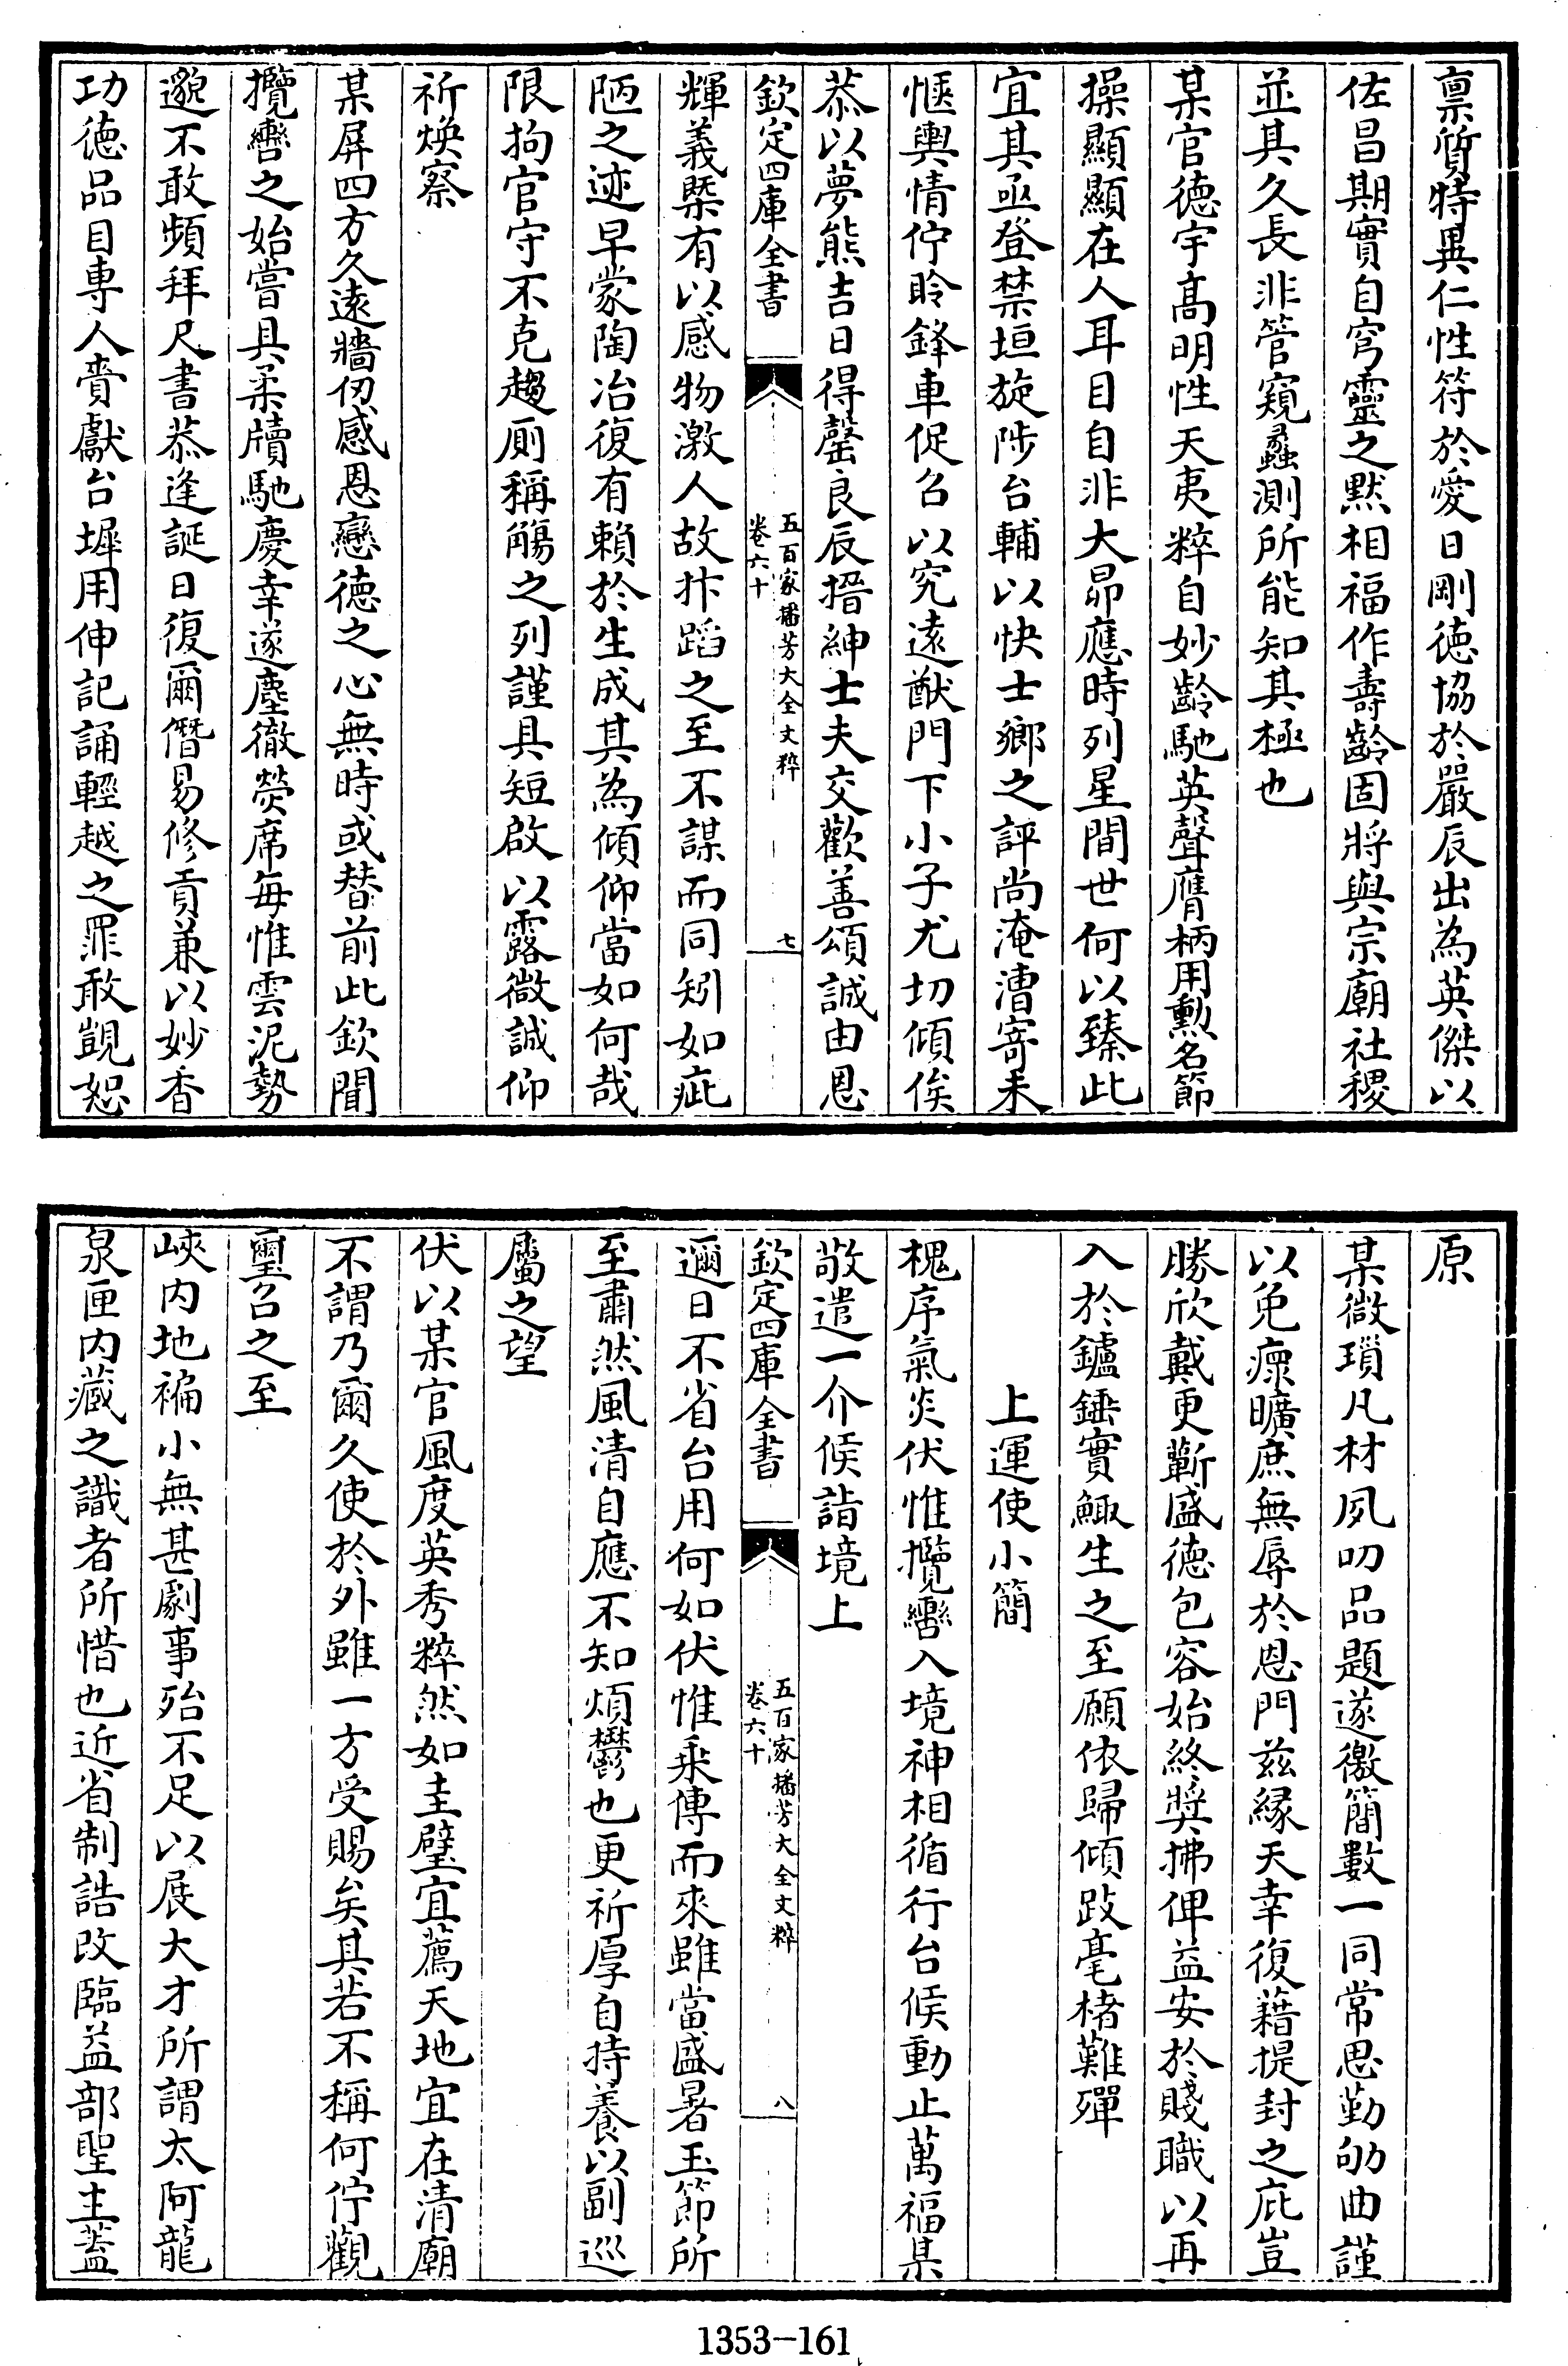 禀質特異仁性符於愛日剛徳協於嚴辰出為英傑以
佐昌期實自穹靈之默相福作壽齡固將與宗廟社稷
並其久長非管窺蠡測所能知其極也
某官徳宇髙明性天夷粹自妙齡馳英聲膺柄用勲名節
操顯顯在人耳目自非大昴應時列星間世何以臻此
宜其亟登禁垣旋陟台輔以快士鄉之評尚淹漕寄未
愜輿情佇聆鋒車促召以究遠猷門下小子尤切傾俟
恭以夢熊吉日得罄良辰搢紳士夫交歡善頌誠由恩
欽定四庫全書
五百家播芳大全文粹
卷六十
七
輝義槩有以感物激人故抃蹈之至不謀而同矧如疵
陋之迹早蒙陶冶復有賴於生成其為傾仰當如何哉
限拘官守不克趨厠稱觴之列謹具短啟以露微誠仰
祈煥察
某屏四方久遠牆仞感恩戀徳之心無時或替前此欽聞
攬轡之始嘗具柔牘馳慶幸遂塵徹熒席每惟雲泥勢
邈不敢頻拜尺書恭逢誕日復爾僭易修貢兼以妙香
功徳品目專人賫獻台墀用伸記誦輕越之罪敢覬恕
原
某微瑣凡材夙叨品題遂徼簡數一同常思勤劬曲謹
以免瘝曠庶無辱於恩門兹縁天幸復藉提封之庇豈
勝欣戴更蘄盛徳包容始終獎拂俾益安於賤職以再
入於鑪錘實鯫生之至願依歸傾跂毫楮難殫
上運使小簡
槐序氣炎伏惟攬轡入境神相循行台候動止萬福某
敬遣一介候詣境上
欽定四庫全書
五百家播芳大全文粹
卷六十
八
邇日不省台用何如伏惟乘傳而來雖當盛暑玉節所
至肅然風清自應不知煩鬱也更祈厚自持養以副巡
屬之望
伏以某官風度英秀粹然如圭璧宜薦天地宜在清廟
不謂乃爾久使於外雖一方受賜矣其若不稱何佇觀
璽召之至
峽内地褊小無甚劇事殆不足以展大才所謂太阿龍
泉匣内藏之識者所惜也近省制誥改臨益部聖主蓋
1353-161